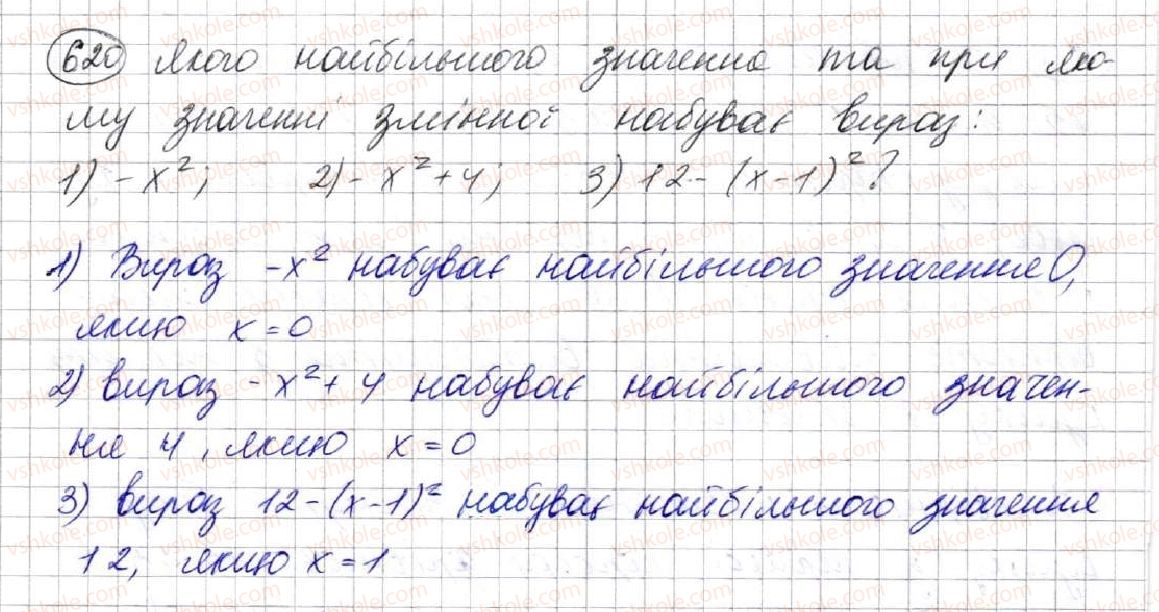 620 Якого найбільшого значення та при яко-
му значенні змінної набуває вираз:
1) -x²; 2) -x²+4; 3) 12-(x-1)²?
1) Вираз -x² набуває найбільшого значення 0,
якщо x=0
2) вираз -x²+4 набуває найбільшого значен-
ня 4, якщо x=0
3) вираз 12-(x-1)² набуває найбільшого значення
12, якщо x=1